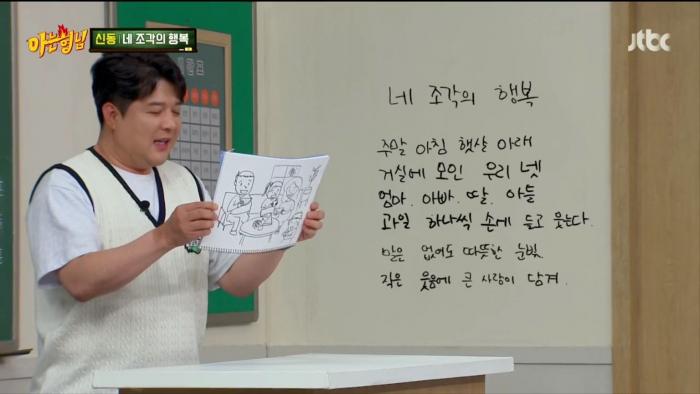 아는 형님
신동 네 조각의 행복
jtbc
네 조각의 행복
주말 아침 햇살 아래
거실에 모인 우리 넷
엄마. 아빠. 딸. 아들
과일 하나씩 손에 들고 웃는다.
말은 없어도 따뜻한 눈빛.
작은 웃음에 큰 사랑이 담겨.